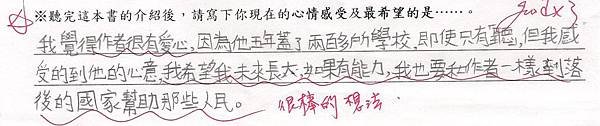 ※聽完這本書的介紹後，請寫下你現在的心情感受及最希望的是……。
good x3
我覺得作者很有愛心，因為他五年蓋了兩百多所學校，即使只有聽，但我感
受的到他的心意，我希望我未來長大，如果有能力，我也要和作者一樣，到落
後的國家幫助那些人民。 很棒的想法．